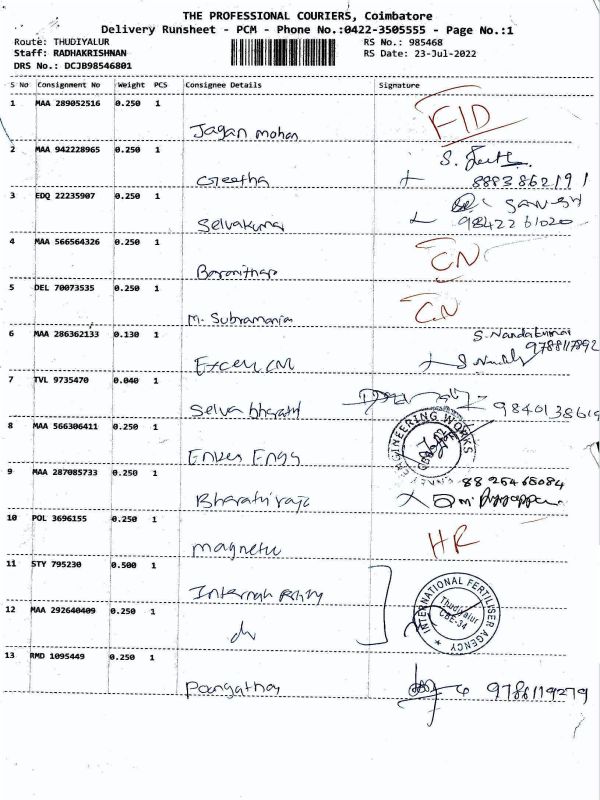 THE PROFESSIONAL COURIERS, Coimbatore
Delivery Runsheet - PCM - Phone No.:0422-3505555 - Page No.:1
Route: THUDIYALUR RS No.: 985468
Staff: RADHAKRISHNAN RS Date: 23-Jul-2022
DRS No.: DCJB98546801
S No Consignment No Weight PCS Consignee Details Signature
1 MAA 289052516 0.250 1
Jagan mohan FID
2 MAA 942228965 0.250 1 S.
Geetha 8883862191
3 EDQ 22235907 0.250 1
Selvakumar 9842261020
4 MAA 566564326 0.250 1 CN
5 DEL 70073535 0.250 1 CN
M. Subramania
6 MAA 286362133 0.130 1 S. Nandakumar
9788117892
7 TVL 9735470 0.040 1
Selva bharati 9840138619
8 MAA 566306411 0.250 1 ENGINEERING WORKS
Engg
9 MAA 287085733 0.250 1 8825465084
Bharathiraja
10 POL 3696155 0.250 1 HR
magnetu
11 STY 795230 0.500 1 INTERNATIONAL FERTILISER AGENCY
Thudiyalur
CBE-34
12 MAA 292640409 0.250 1
13 RMD 1095449 0.250 1
9786119279